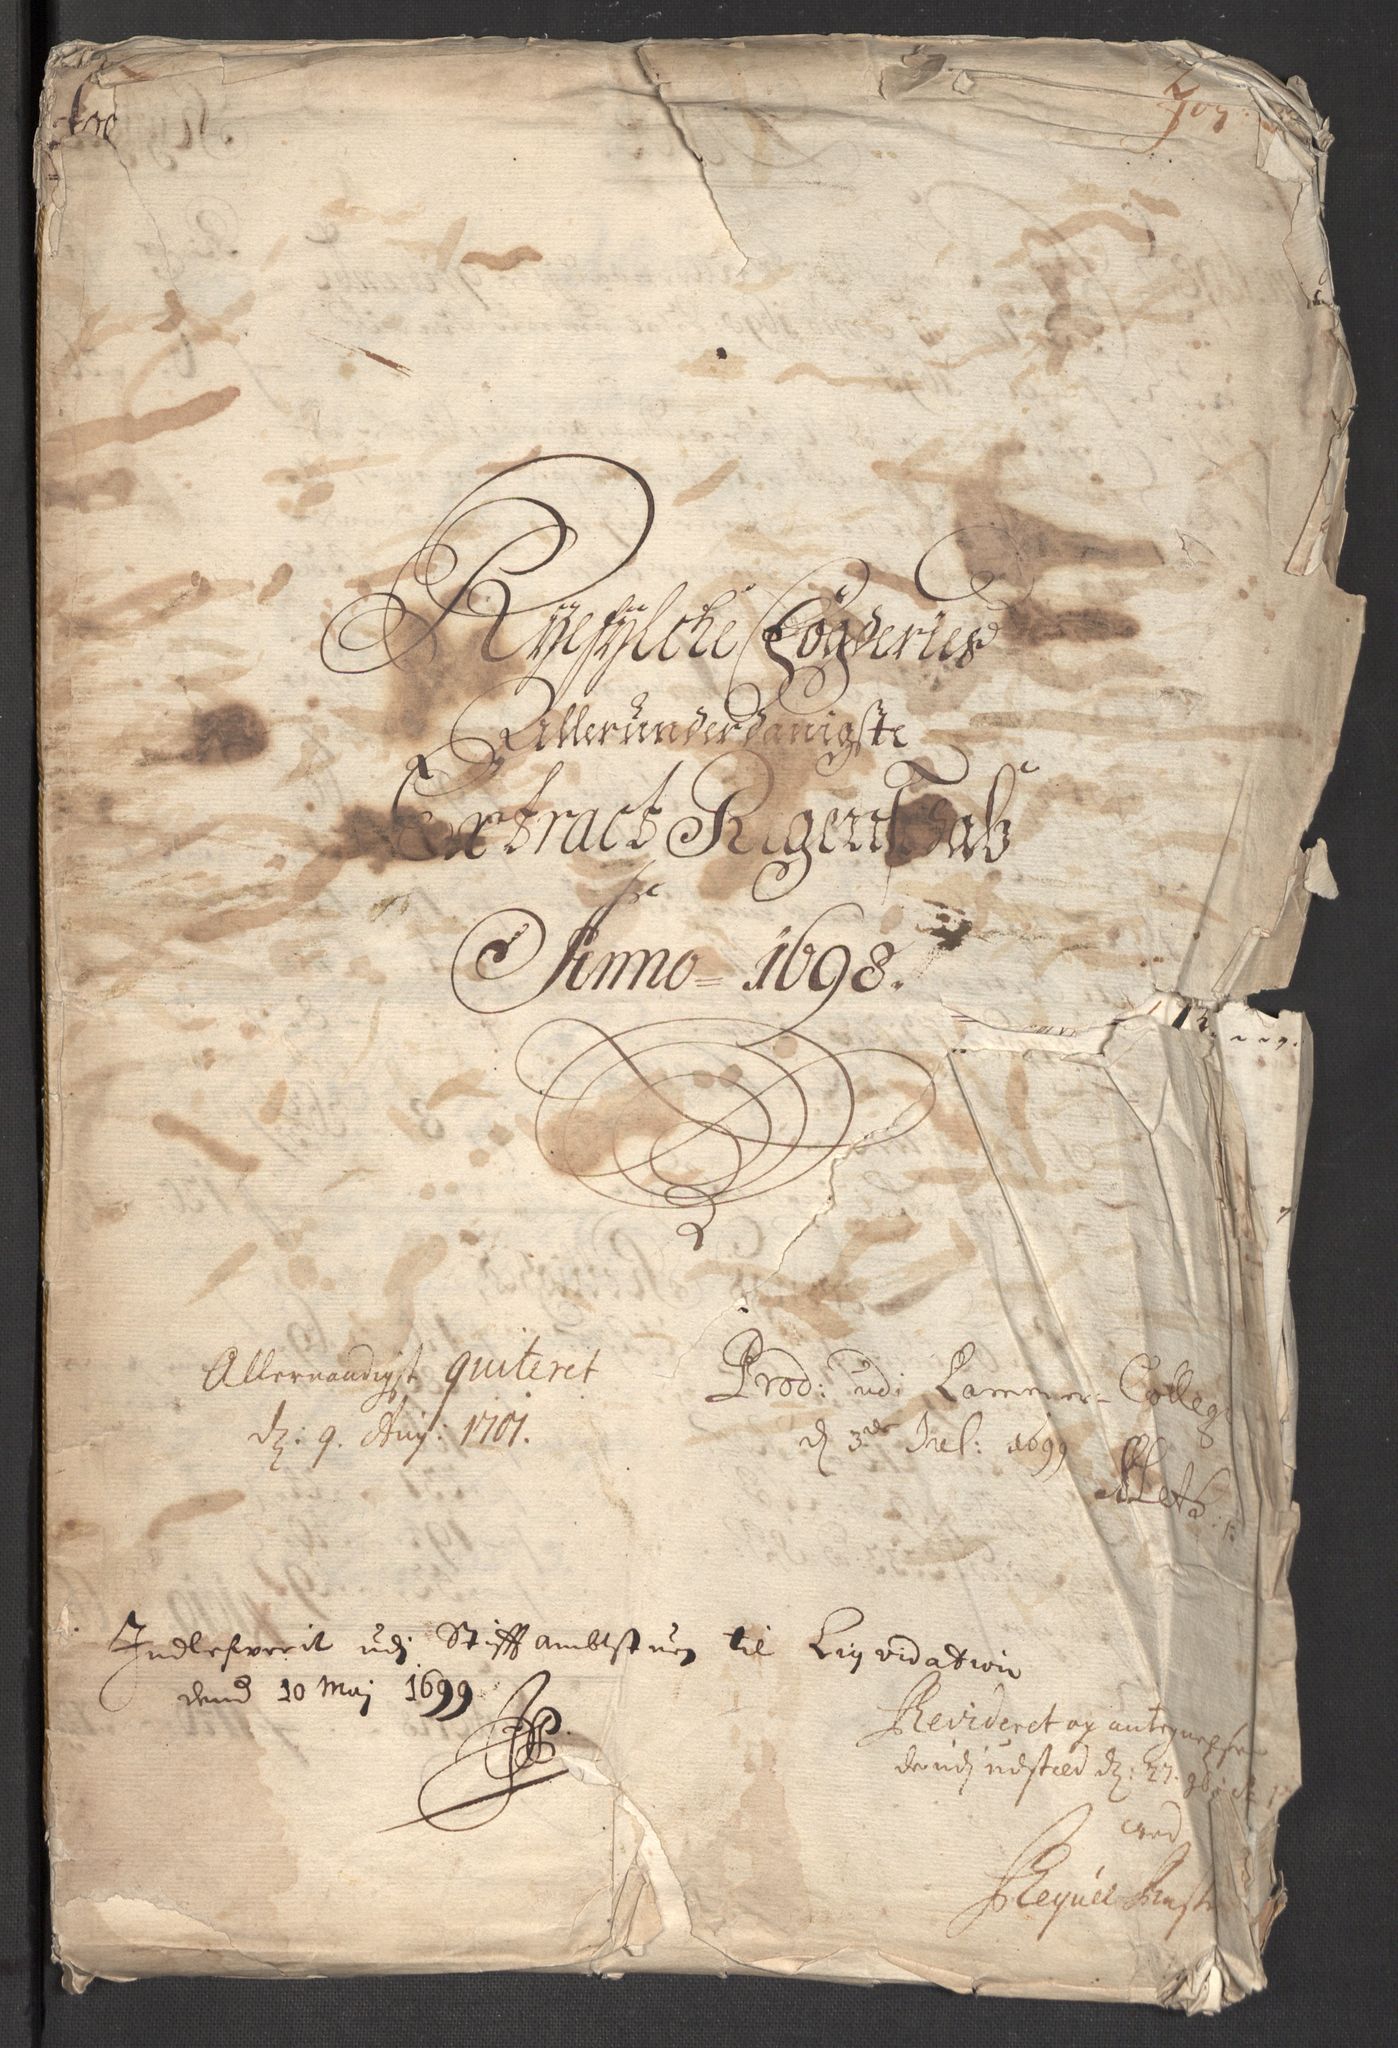 Ryefylche Fogderies
Allerunderdanigste
Extract Regenschab
for
Anno = 1698.
Allernaadigst quiteret
dz: 9. Aug: 1701.
Prod: udi Cammer-Colleg
d 3de Jul: 1699
Indlefverit udj Stifftambtstuen til Liqvidation
dend 10 Maj 1699
Revideret og antegnelser
derudj udsted dz: 27.
ved